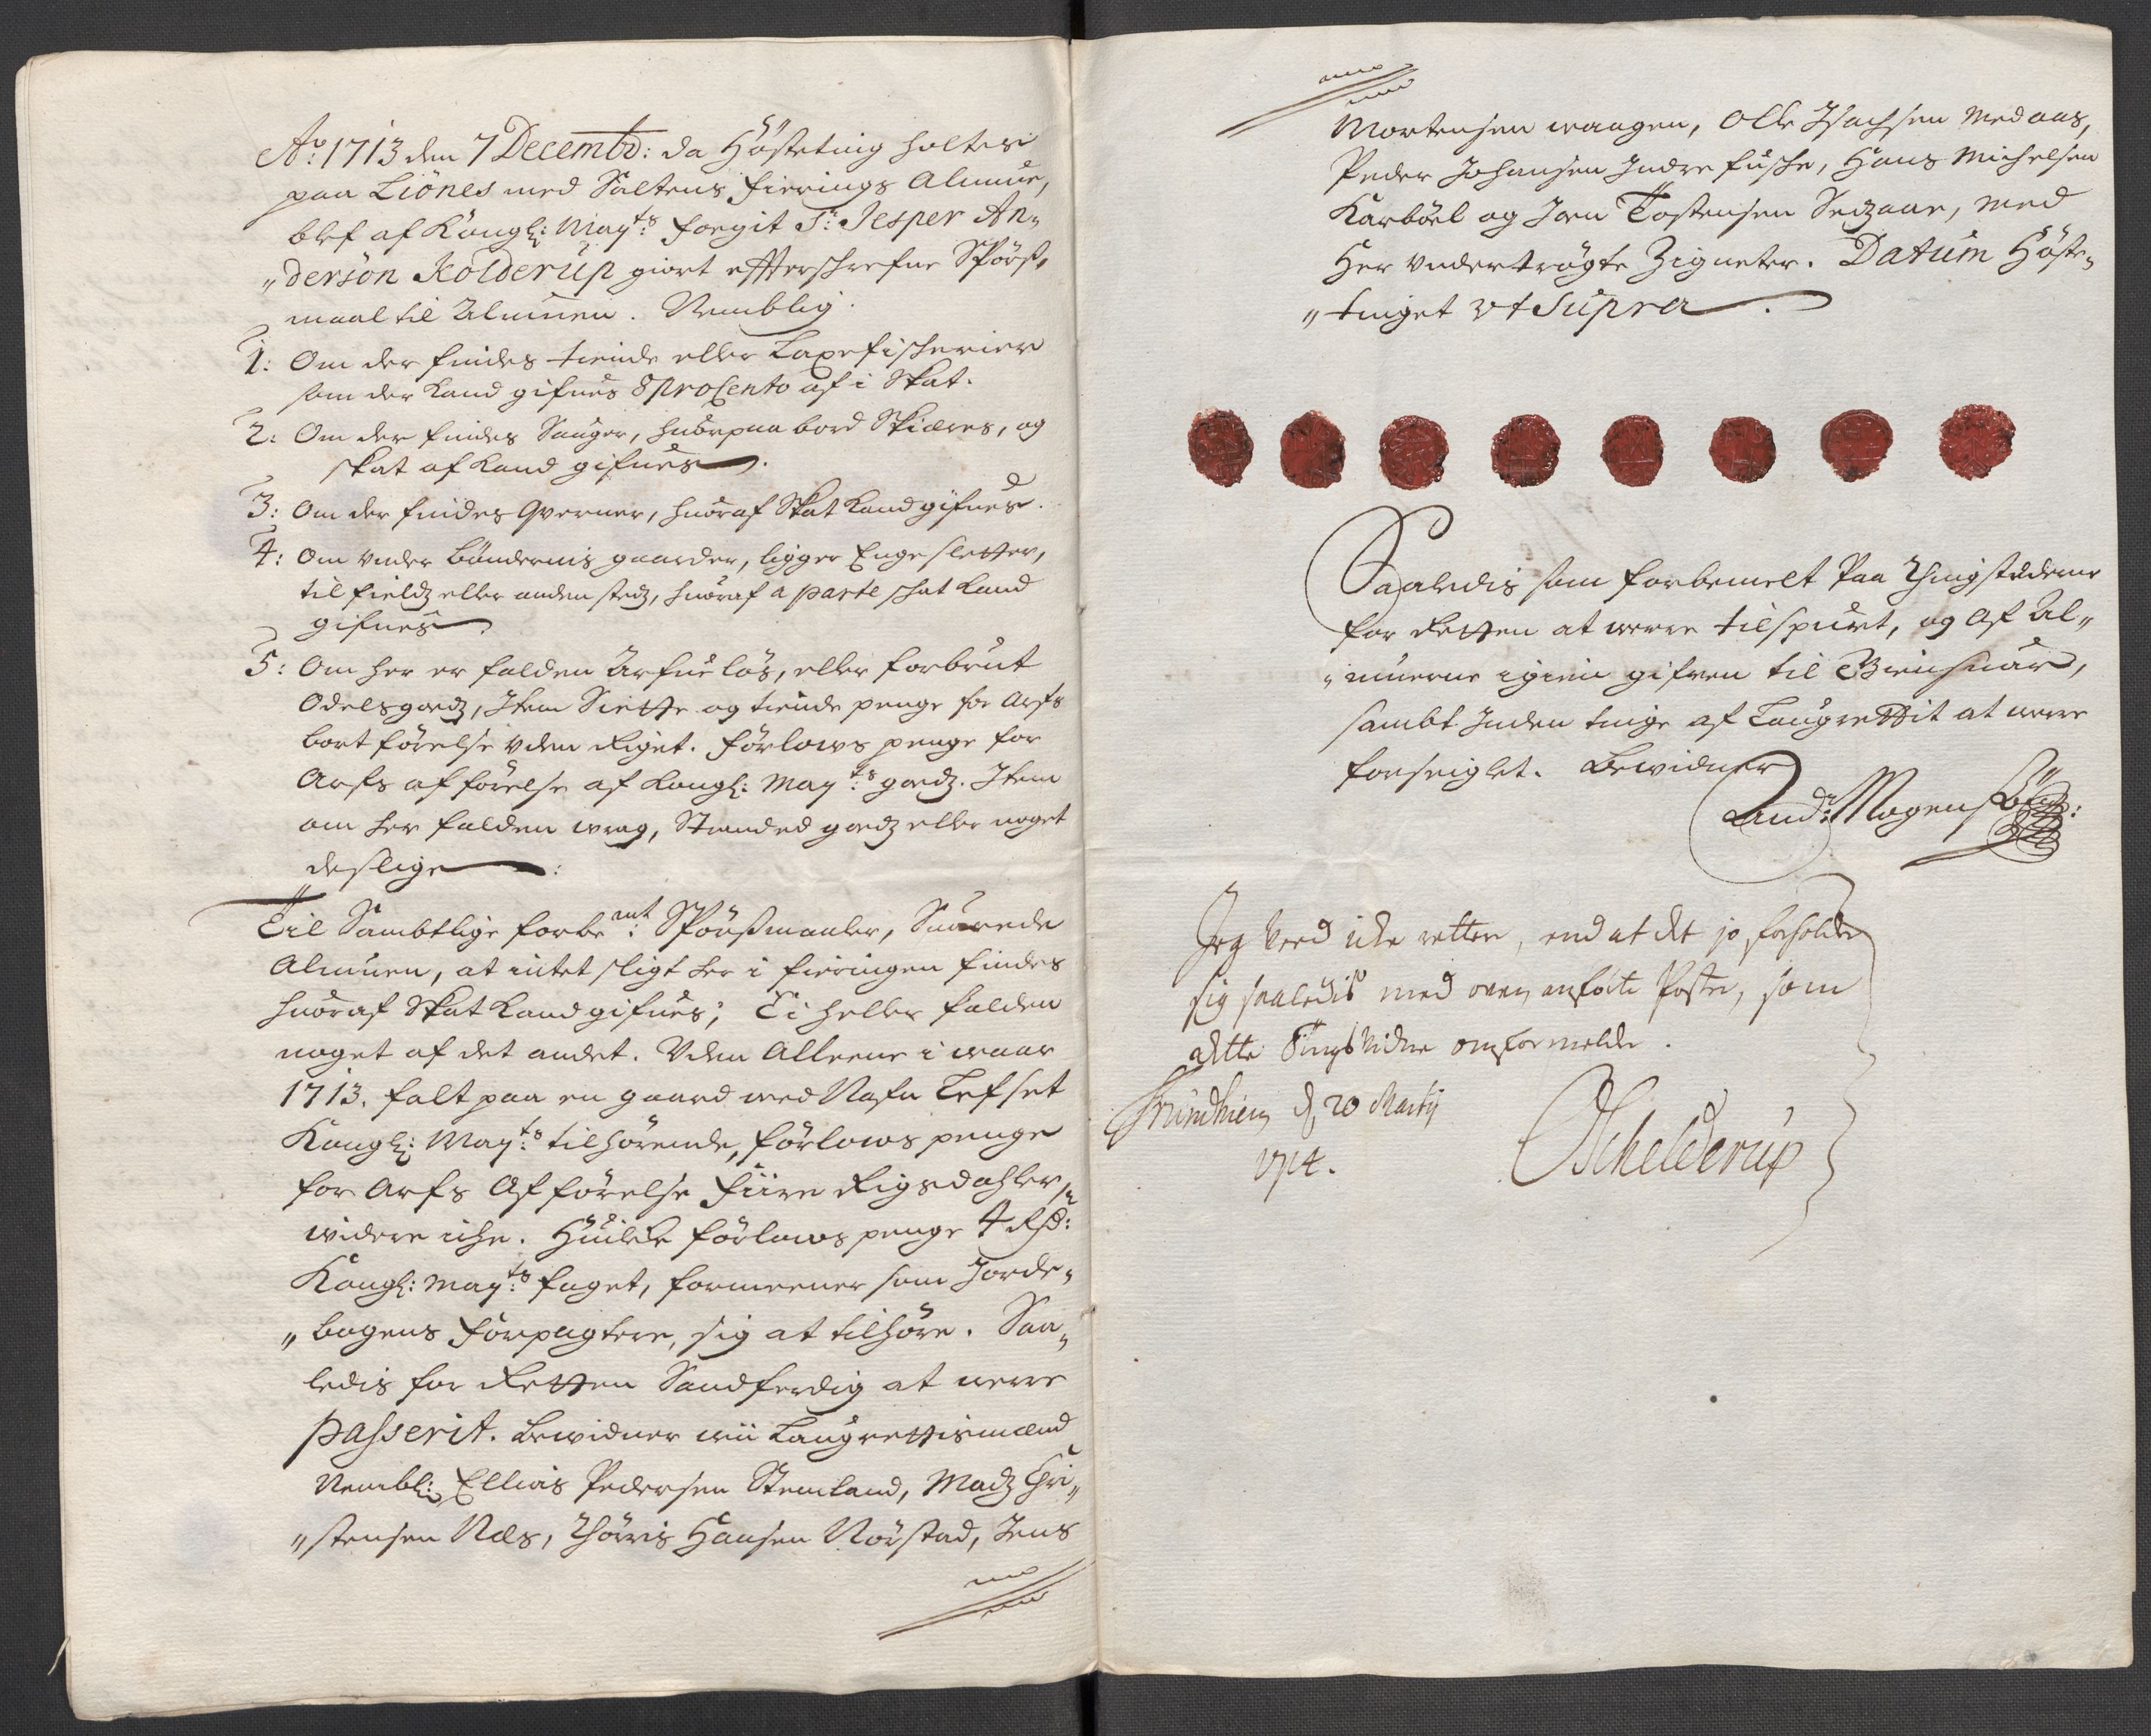 Ao: 1713 den 7 Decembr: da Hösteting holtes
paa Liönes med Saltens fierings Almue,
blef af Kongl: Mayts: foegit Sr: Jesper An„
„derson Kolderup giort effterschrefne Spörs„
maal til Almuen. Nemblig.
1: Om der findes tiende eller Laxefischerier
som der kand gifues 8 proCento af i Skat.
2: Om der findes Sauger, huorpaa bord Skieres, og
skat af kand gifues.
3: Om der findes Qverner, huoraf Skat kand gifues.
4: Om under bøndernis gaarder, ligger Engesletter,
til fieldz eller anden stedz, huoraf a parte schat kand
gifues
5: Om her er falden Arfue løs, eller forbrut
Odelsgodz, Item Siette og tiende penge for Arfs
bort förelse uden Riget. förlows penge for
Arfs afförelse af Kongl: Mayts: godz. Item
om her falden wrag, Stranded godz eller noget
deslige :
Til Sambtlige forbemt: Spörsmaaler, Suarede
Almuen, at intet sligt her i fieringen findes
huoraf Skat kand gifues; Ei heller falden
noget af det andet. Uden Alleene i waar
1713. falt paa en gaard med Nafn Lefset
Kongl: Mayts: tilhörende, förlows penge
for Arfs Afförelse fiire Rigsdahler,
widere iche. Huilke förlows penge 4 Rd:
Kongl: Mayts: foget, formeener som Jorde„
„bogens Forpagtere, sig at tilhöre. Saa„
ledis for Retten Sandferdig at were
passerit. Bewidner wii Laugrettismænd
Nembl: Ellias Pedersen Stemland, Madz Chri„
„stensen Næs, Thörris Hansen Nöistad, Jens
Mortensen waagen, Olle Isachsen Medaas,
Peder Johansen Indre fuske, Hans Michelsen
Karböel og Jon Tostensen Sedzaae, med
Her undertrögte Zigneter. Datum Höste„
„tinget ut Supra.
Saaledis som forbemelt Paa Thingstederne
for Retten at were tilspurt, og Af Al„
„muerne igien gifven til Giensuar,
sambt Inden tinge af Laugrettit at were
forseiglet. Bewidner
And: Mogensön:
Jeg veed icke rettere, end at det jo forholder
sig saaledis med ovenanförte Poster, som
dette Tingsvidne omformelder.
Trundhiem d 20 Martij
1714.
Schelderup